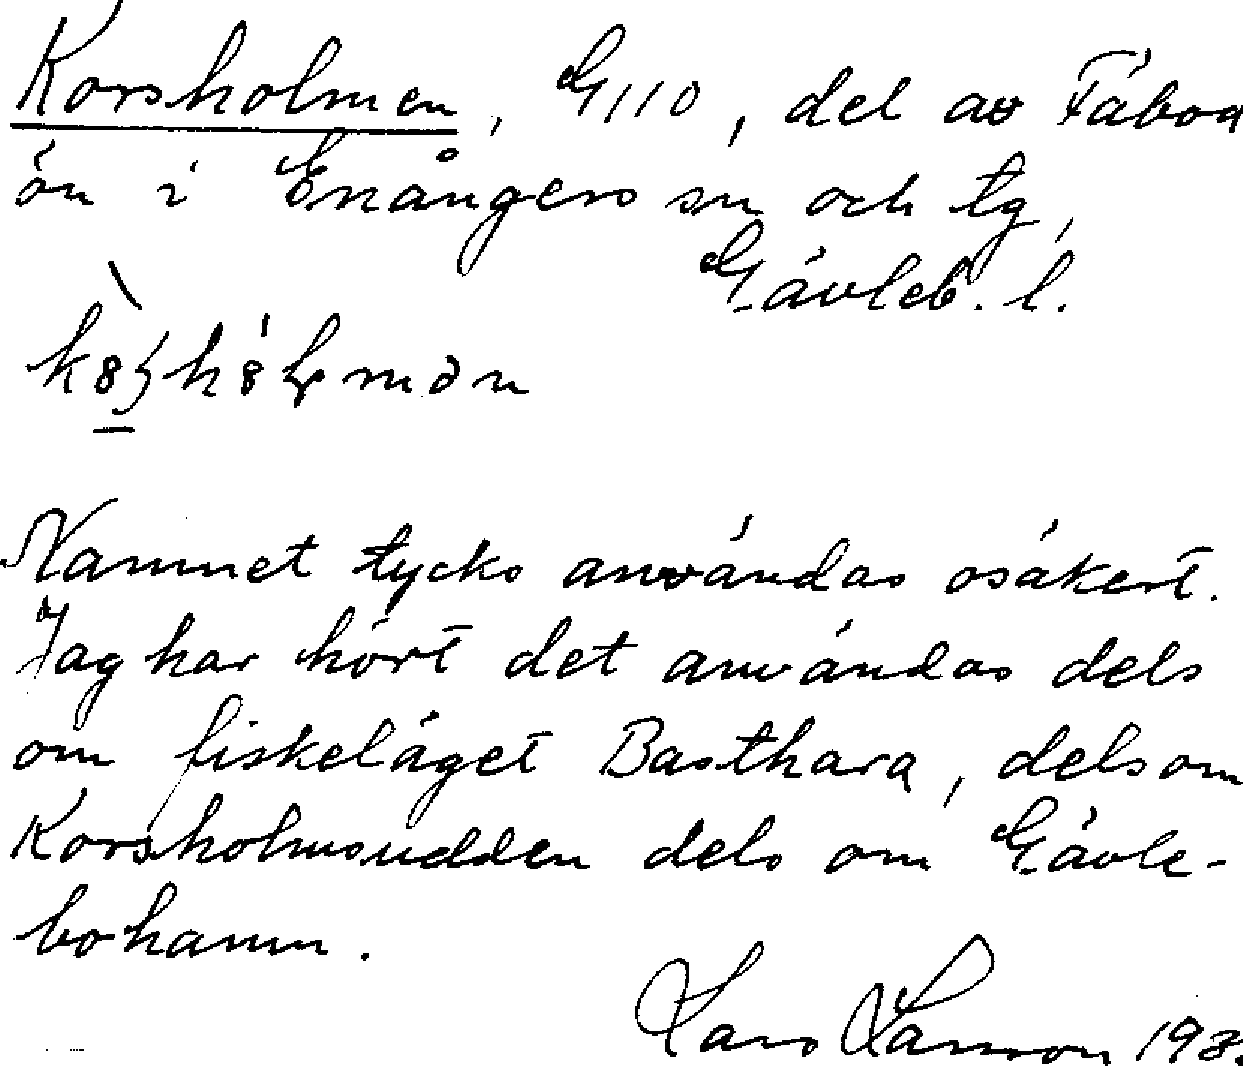 Korsholmen, G110, del av Fäbod
ön i Enångers sn och tg,
Gävleb. l.
Namnet tycks användas osäkert.
Jag har hört det användas dels
om fiskeläget Basthara, dels om
Korsholmsudden dels om Gävle-
bohamn.
Lars Larsson